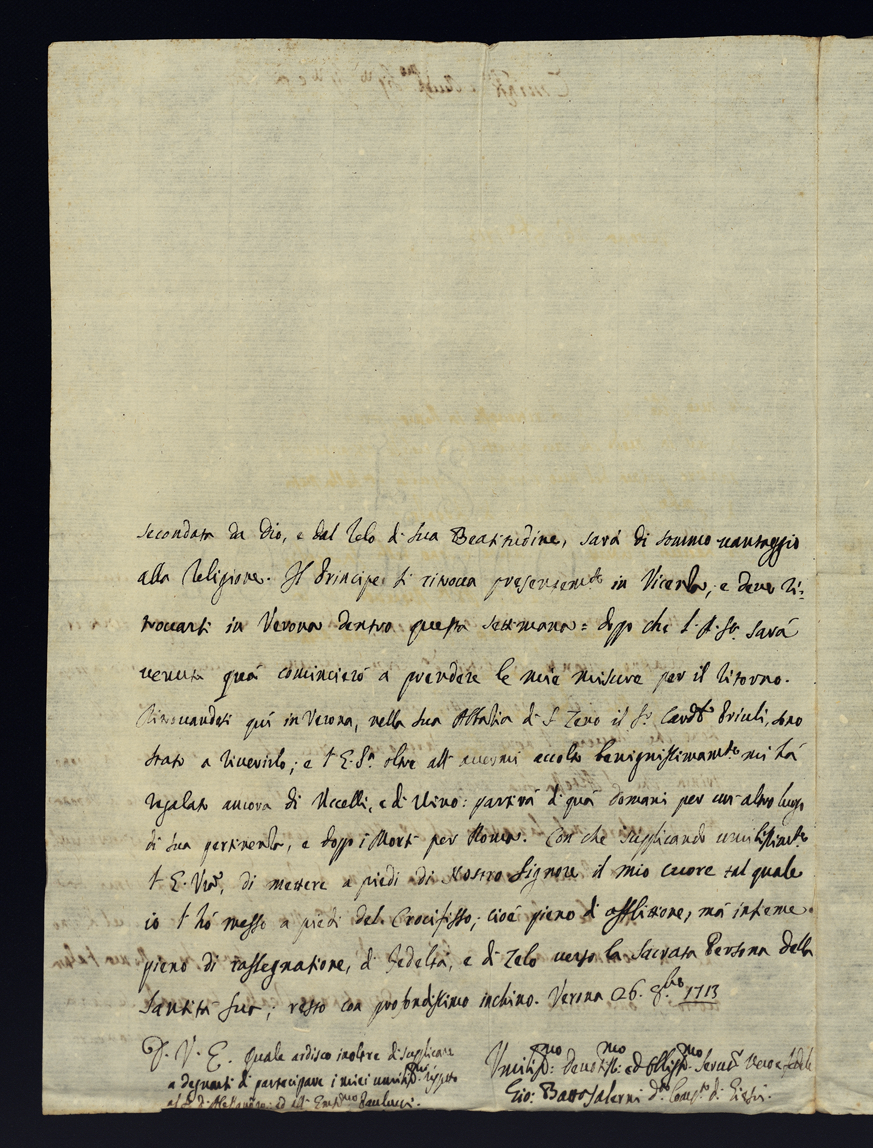 secondata da Dio, e dal Zelo di Sua Beatitudine, sarà di sommo vantaggio
alla Religione. Il Principe si ritrova presentem.te in Vicenza, e deve ri-
trovarsi in Verona dentro questa settimana: doppo che S. A. S. sarà
venuta quà comincierò a prendere le mie misure per il ritorno.
Ritrovandosi quì in Verona, nella Sua Abbatia di S. Zeno il S.r Card.le Priuli, sono
stato a riverirlo; e l'E. S.a oltre all'avermi accolto benignissimam.te mi hà
regalato ancora di Uccelli, e di Vino: partirà di quà domani per un'altro luogo
di sua pertinenza, e doppo i Morti per Roma. Con che supplicando umilissimam.te
l'E. V.ra, di mettere a piedi di Nostro Signore il mio cuore tal quale
io l'hò messo a piedi del Crocifisso, cioè pieno di afflittione, mà insieme
pieno di rassegnatione, di fedeltà, e di Zelo verso la Sacrata Persona della
Santità Sua; resto con profondissimo inchino. Verona 26. 8.bre 1713
D. V. E. quale ardisco inoltre di supplicare
a degnarsi di partecipare i miei umiliss.mi rispetti
al S.r D. Alessandro: ed all'Em.mo Paulucci.
Umiliss.mo: devotiss.mo ed obbligss.mo Servid.re vero e fedele
Gio: Batta Salerni d.a Comp.a di Giesù.